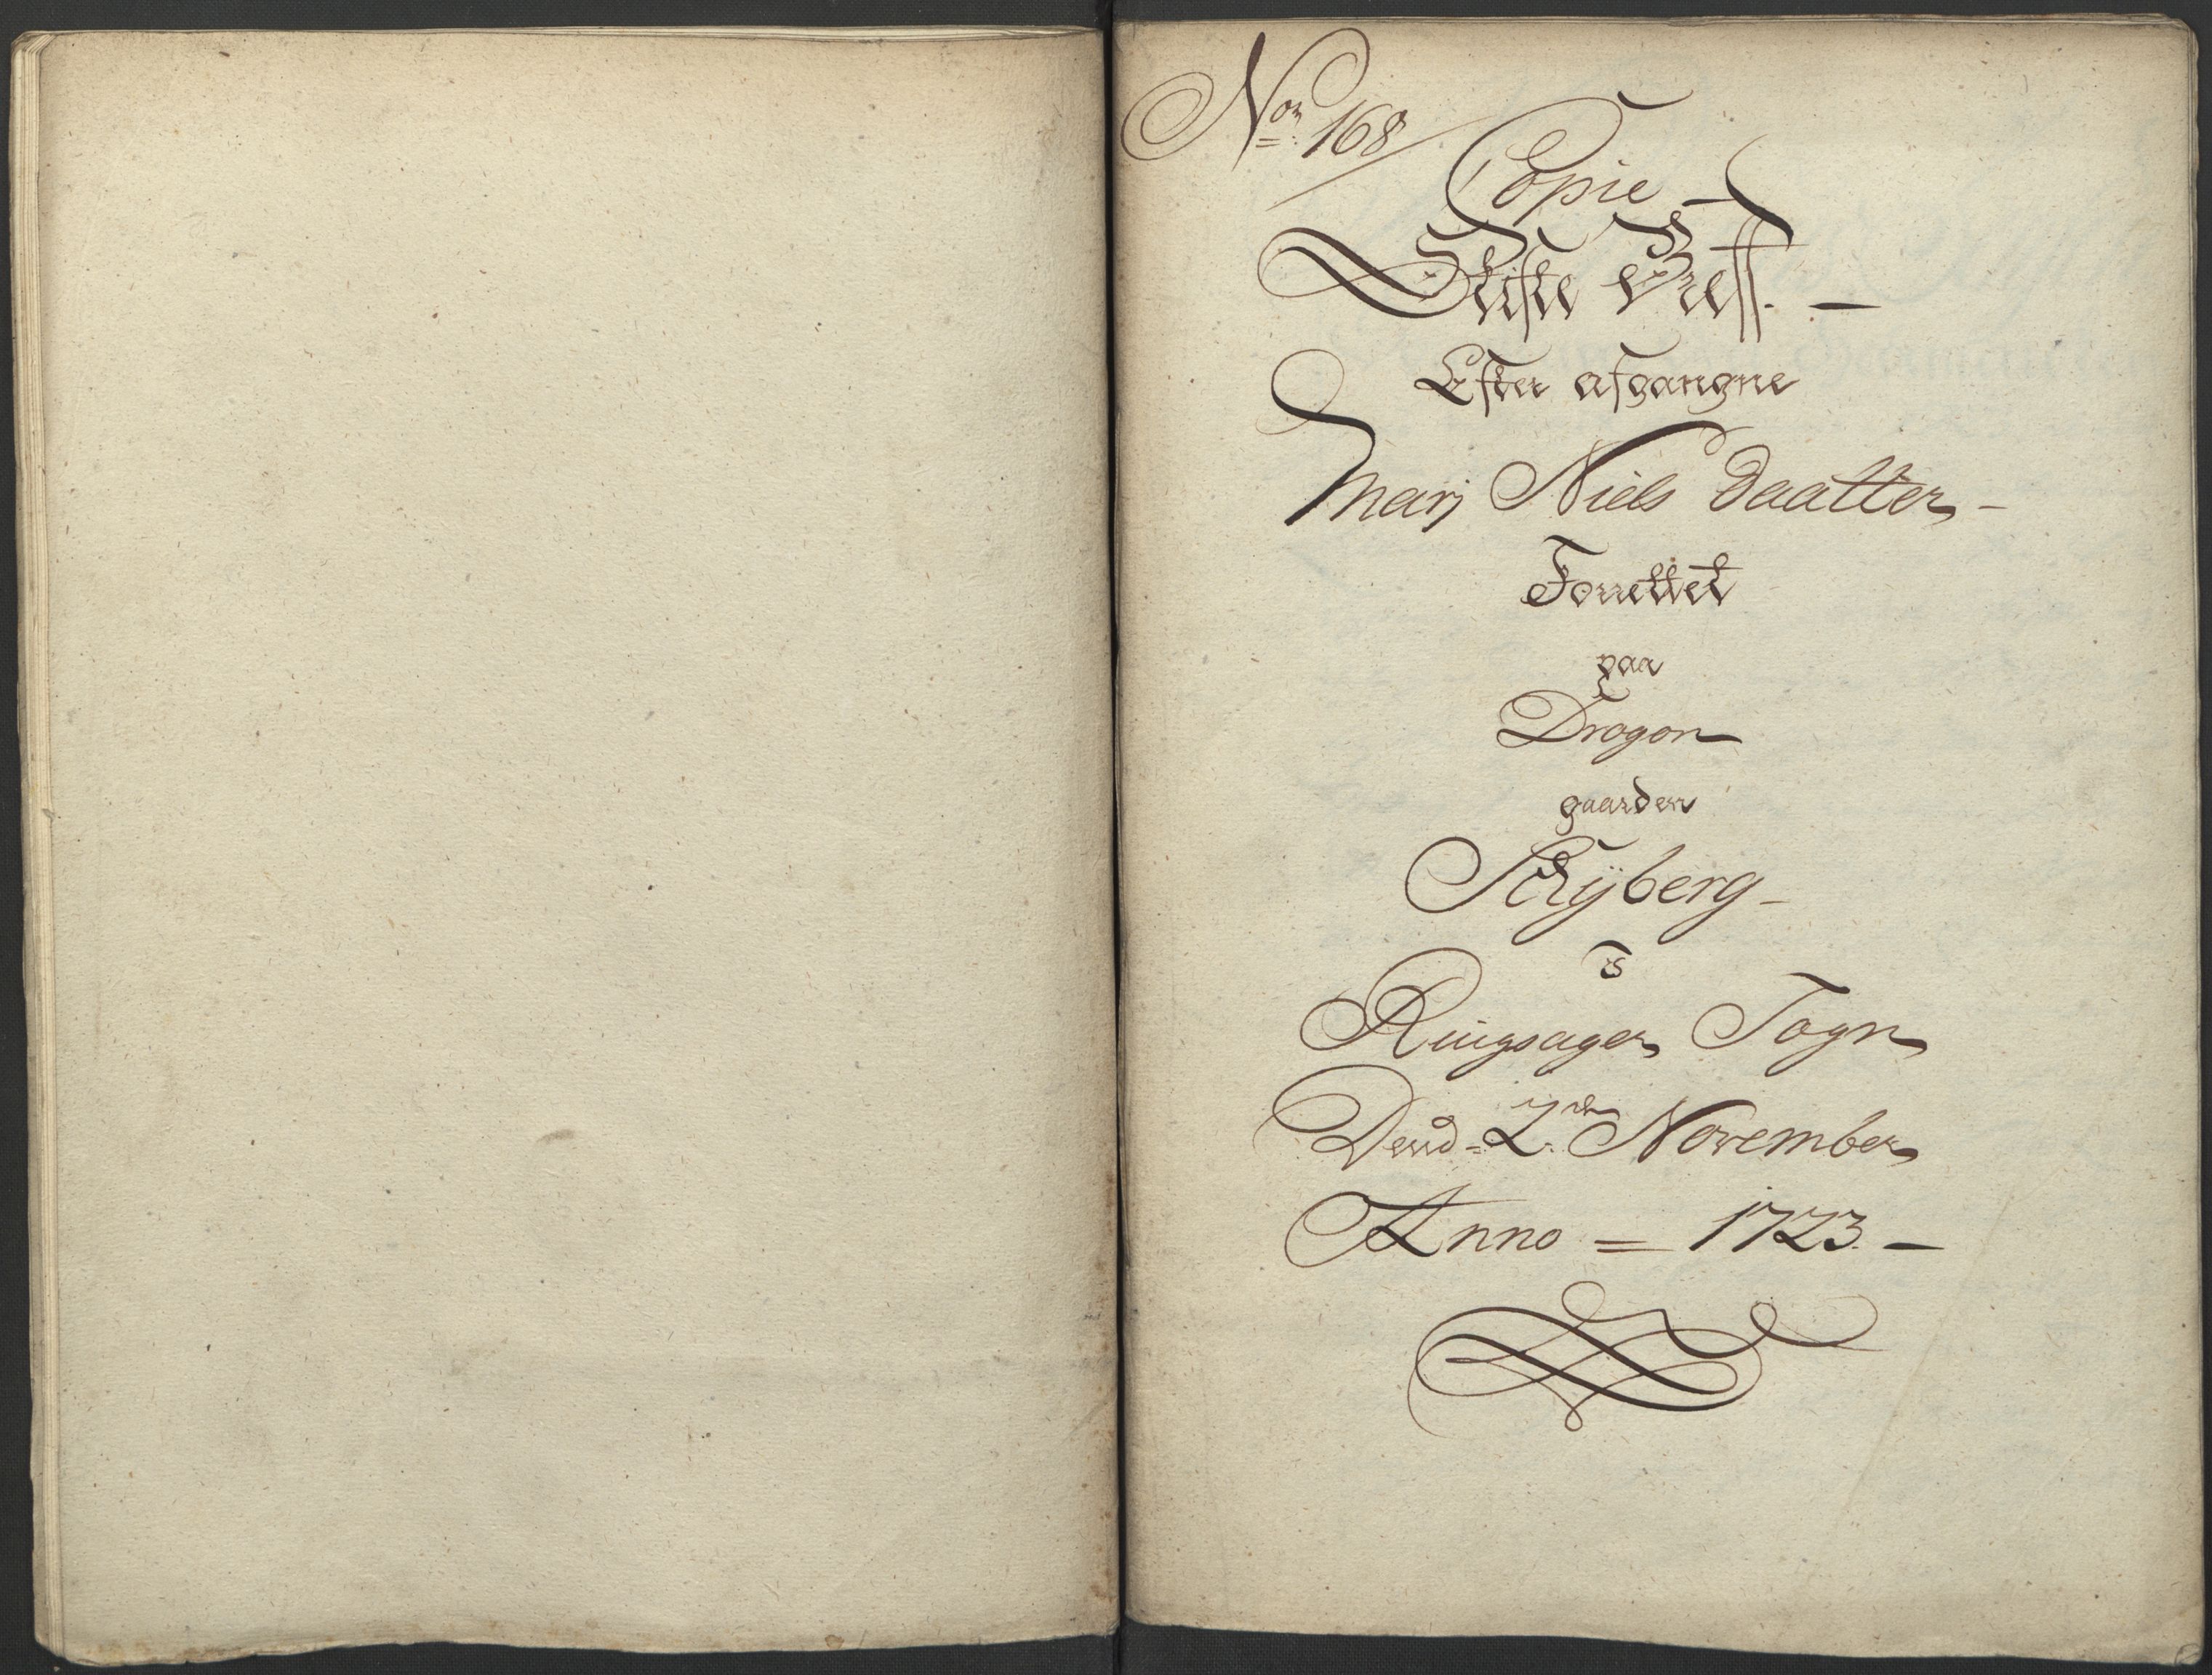 Nor: 168
Copie
Skifte Breff. —
Efter afgangne
Marj Niels Daatter –
Forrettet
paa
Dragon
gaarden
Schÿberg –
i
Ringsager Sogn
Dend = 2den November
Anno = 1723. —